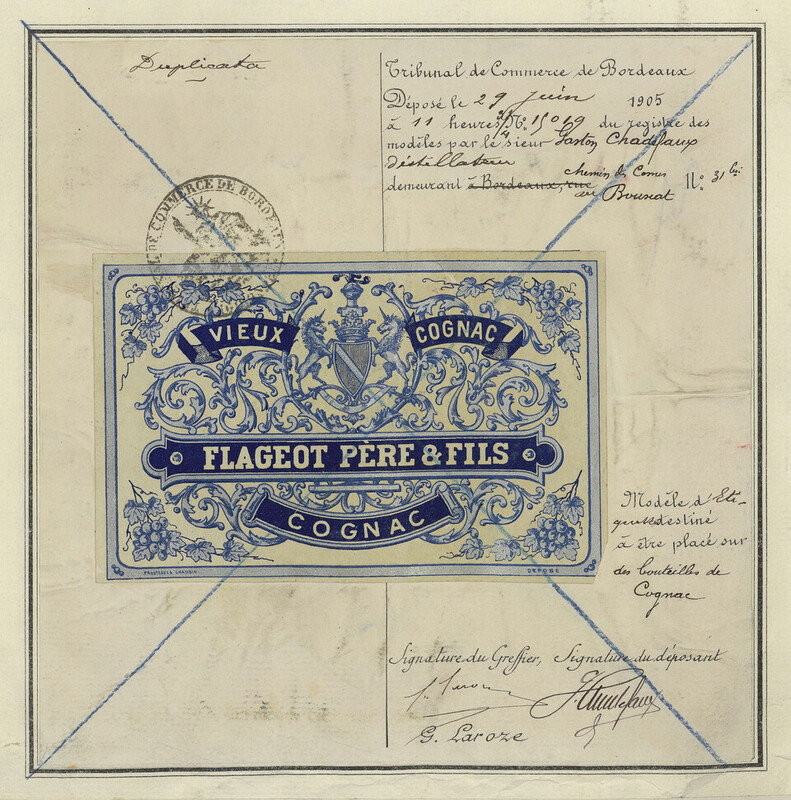 Duplicata
Tribunal de Commerce de Bordeaux
Déposé le 29 Juin 1905
à 11 heures 3/4 N° 15019 du registre des
modèles par le sieur Gaston Chadefaux
distillateur
demeurant à Bordeaux, rue chemin de N° 31 bis
au Bousat
DE COMMERCE DE BORDEAUX
VIEUX COGNAC
FLAGEOT PÈRE & FILS
COGNAC
DÉPOSÉ
Modèle d'Eti-
quette destiné
à être placé sur
des bouteilles de
Cognac
Signature du Greffier, Signature du déposant
G. Laroze